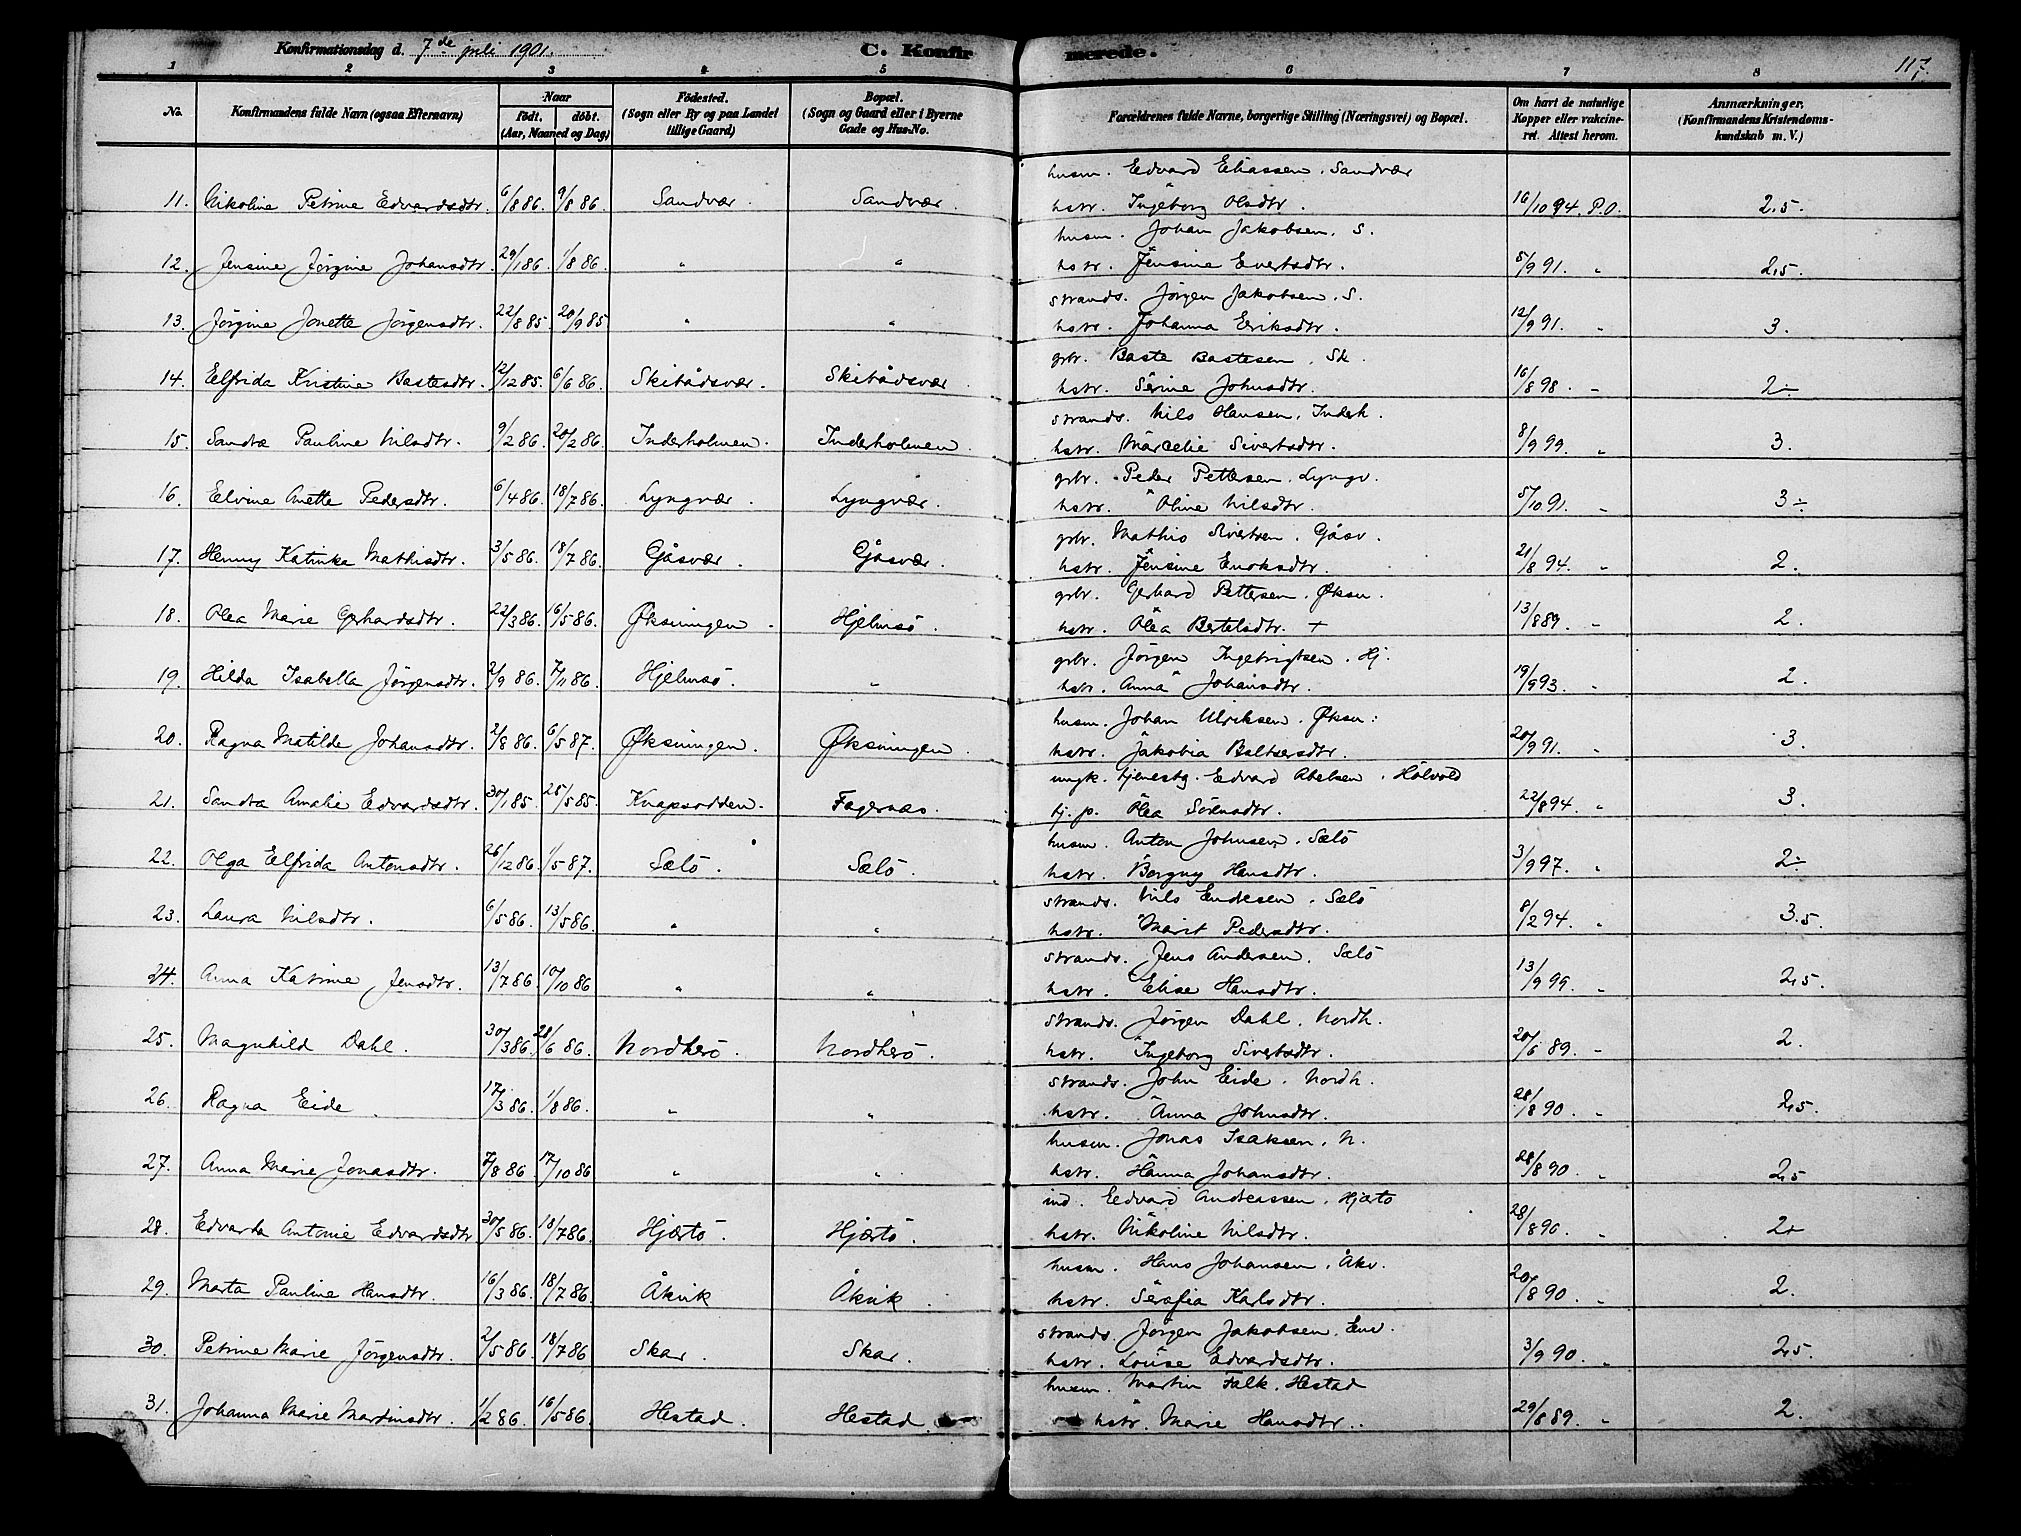 Konfirmationsdag d. 7de juli 1901. C. Konfirmerede. 117.
1 2 3 4 5 6 7 8
No. Konfirmandens fulde Navn (ogsaa Efternavn) Naar født. døbt. (Aar, Maaned og Dag) Födested. (Sogn eller By og paa Landet tillige Gaard) Bopæl. (Sogn og Gaard eller i Byerne Gade og Hus-No. Forældrenes fulde Navne, borgerlige Stilling (Næringsvei) og Bopæl. Om havt de naturlige Kopper eller vakcineret. Attest herom. Anmærkninger. (Konfirmandens Kristendomskundskab m. V.)
husm. Edvard Eliassen. Sandvær
11. Nikoline Petrine Edvardsdtr. 6/8 86. 9/8 86. Sandvær. Sandvær. hstr. Ingeborg Olsdtr. 16/10 94. P.O. 2,5.
husm. Johan Jakobsen. S.
12. Jensine Jørgine Johansdtr. 29/1 86. 1/8 86. " " hstr. Jensine Evertsdtr. 5/9 91. " 2,5.
strands. Jörgen Jakobsen. S.
13. Jørgine Jonette Jørgensdtr. 22/8 85. 20/9 85 " " hstr. Johanna Eriksdtr. 12/9 91. " 3.
grbr. Baste Bastesen. Sk.
14. Elfrida Kristine Bastesdtr. 12/12 85. 6/6 86. Skibådsvær. Skibådsvær. hstr. Serine Johnsdtr. 16/8 98. " 2÷
strands. Nils Hansen. Inderh.
15. Sandra Pauline Nilsdtr. 9/2 86. 20/2 86. Inderholmen. Inderholmen. hstr. Marcelie Sivertsdtr. 8/9 99. " 3.
grbr. Peder Pettersen. Lyngv.
16. Elvine Anette Pedersdtr. 6/4 86. 18/7 86. Lyngvær. Lyngvær. hstr. Oline Nilsdtr. 5/10 91. " 3÷
grbr. Mathis Sivertsen. Gåsv.
17. Henny Katinka Mathisdtr. 3/5 86. 18/7 86. Gåsvær. Gåsvær. hstr. Jensine Enoksdtr. 21/8 94. " 2.
grbr. Gerhard Pettersen. Øksn.
18. Olea Marie Gerhardsdtr. 22/3 86. 16/5 86. Øksningen. Hjelmsö. hstr. Olea Bertelsdtr. + 13/8 89. " 2.
grbr. Jörgen Ingebrigtsen. Hj.
19. Hilda Isabella Jørgensdtr. 2/9 86. 7/11 86. Hjelmsö. " hstr. Anna Johansdtr. 19/9 93. " 2.
husm. Johan Ulriksen. Øksn:
20. Ragna Matilde Johansdtr. 2/8 86. 6/5 87. Øksningen. Øksningen. hstr. Jakobia Baltsersdtr. 20/9 91. " 3.
ungk. tjenestg. Edvard Abelsen. Hölvold
21. Sandra Amalie Edvardsdtr. 30/1 85. 25/5 85. Knapsodden. Fagernas. tj. p. Olea Sörensdtr. 22/8 94. " 3.
husm. Anton Johnsen. Sælö
22. Olga Elfrida Antonsdtr. 26/12 86. 1/5 87. Sælö. Sælö. hstr. Borgny Hansdtr. 3/9 97. " 2÷
strands. Nils Endresen. Sælö
23. Laura Nilsdtr. 6/5 86. 13/5 86. " " hstr. Marit Pedersdtr. 8/2 94. " 3.5.
strands. Jens Andersen. Sælö
24. Anna Katrine Jensdtr. 13/7 86. 10/10 86 " " hstr. Elise Hansdtr. 13/9 99. " 2,5.
strands. Jörgen Dahl. Nordh.
25. Magnhild Dahl. 30/3 86. 28/6 86. Nordherö. Nordherö. hstr. Ingeborg Sivertsdtr. 20/6 89. " 2.
strands. John Eide. Nordh.
26. Ragna Eide. 17/3 86. 1/8 86. " " hstr. Anna Johnsdtr. 28/8 90. " 2,5.
husm. Jonas Isaksen. N.
27. Anna Marie Jonasdtr. 7/8 86 17/10 86 " " hstr. Hanna Johansdtr. 28/8 90. " 2,5
ind. Edvard Andreassen. Hjærtö
28. Edvarda Antonie Edvardsdtr 30/5 86. 18/7 86. Hjærtö. Hjærtö. hstr. Nikoline Nilsdtr. 28/8 90. " 2+
husm. Hans Johansen. Åkv.
29. Marta Pauline Hansdtr. 16/3 86. 18/7 86. Åkvik Åkvik. hstr. Serafia Karlsdtr. 20/8 90. " 2.
strands. Jörgen Jakobsen.
30. Petrine Marie Jørgensdtr. 2/5 86. 18/7 86 Skar. Skar. hstr. Louise Edvardsdtr. 3/9 90. " 2,5.
husm. Martin Falk. Hestad
31. Johanna Marie Martinsdtr. 1/2 86. 16/5 86. Hestad. Hestad. hstr. Marie Hansdtr. 29/8 89. " 2.